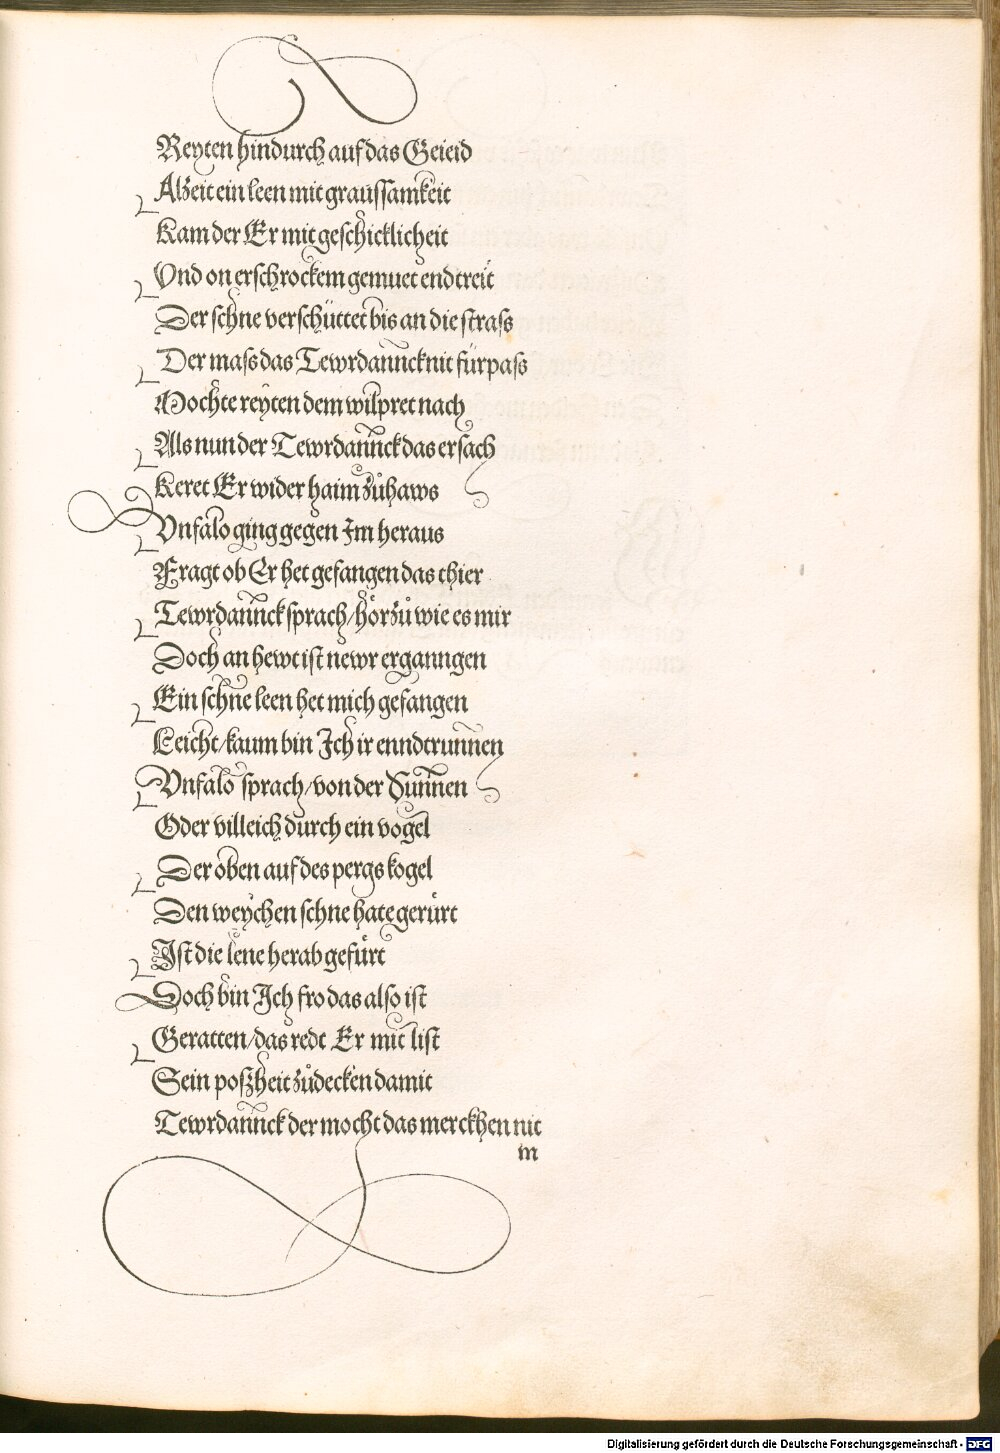 Reyten hindurch auf das Geieid
Alzeit ein leen mit graussamkeit
Kam der Er mit geschicklicheit
Vnd on erschrockem gemuet endtreit
Der schne verschüttet bis an die strass
Der mass das Tewrdannck nit fürpass
Mochte reyten dem wilpret nach
Als nun der Tewrdannck das ersach
Keret Er wider haim zůhaws
Vnfalo ging gegen Im heraus
Fragt ob Er het gefangen das thier
Tewrdannck sprach/hör zů wie es mir
Doch an hewt ist newr erganngen
Ein schne leen het mich gefangen
Leicht/kaum bin Ich ir enndtrunnen
Vnfalo sprach/von der Sunnen
Oder villeich durch ein vogel
Der oben auf des pergs kogel
Den weychen schne hate gerürt
Ist die lene herab gefürt
Doch bin Ich fro das also ist
Geratten/das redt Er mit list
Sein poszheit zůdecken damit
Tewrdannck der mocht das merckhen nit
m
Digitalisierung gefördert durch die Deutsche Forschungsgemeinschaft - DFG